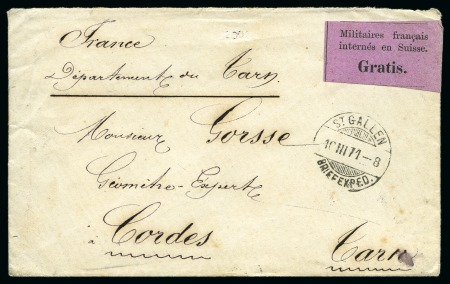 France
Département du Tarn
Militaires français
internés en Suisse.
Gratis.
Monsieur Gorsse
Géomètre-Expert
à Cordes
Tarn
ST GALLEN
10 III 71 - 8
BRIEFEXPED.